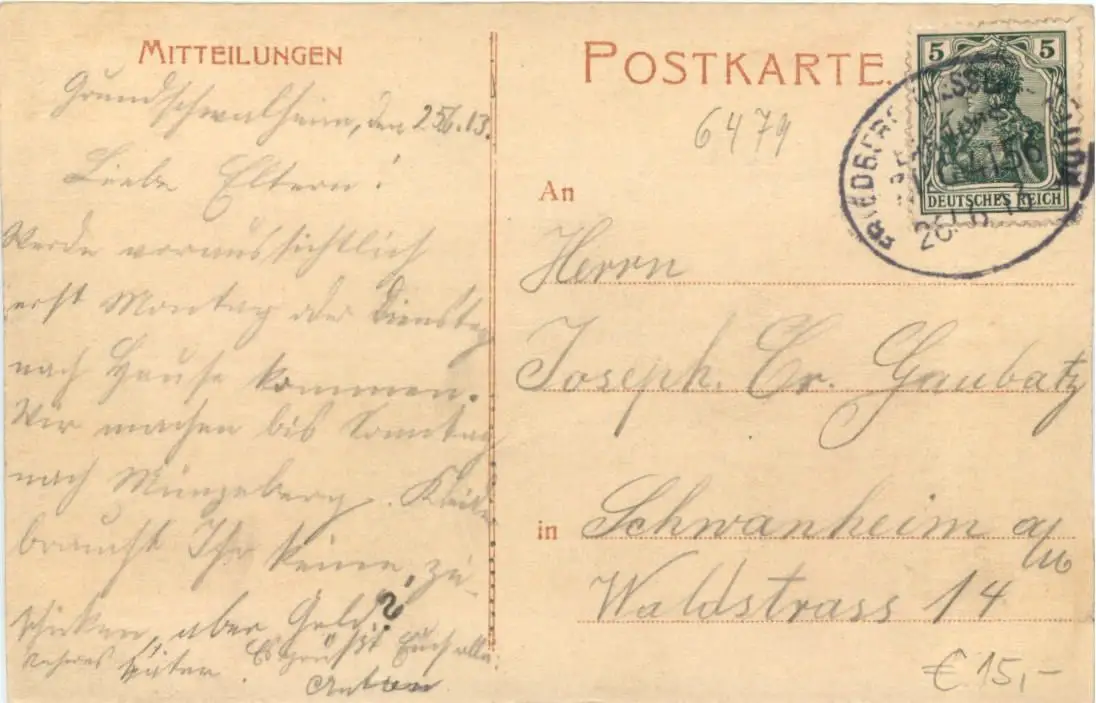 MITTEILUNGEN
Grundschwalheim, den 25.6.13.
Liebe Eltern!
Werde voraussichtlich
erst Montag oder Dienstag
nach Hause kommen.
Wir machen bis Sonntag
nach Münzeberg. Kleider
braucht Ihr keine zu-
schicken, aber Geld?
Näheres später. Es grüßt Euch alle
Anton
POSTKARTE.
6479
5 5
DEUTSCHES REICH
FRIEDBERG (HESSEN)
26.6.13
An
Herrn
Joseph. Cr. Graubatz
in Schwanheim a/M
Waldstrass 14
€ 15,-